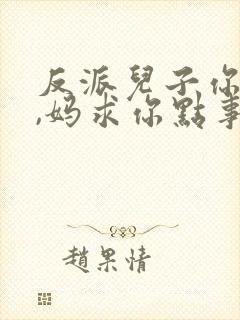 反派兒子你
,妈求你點事
趙果情